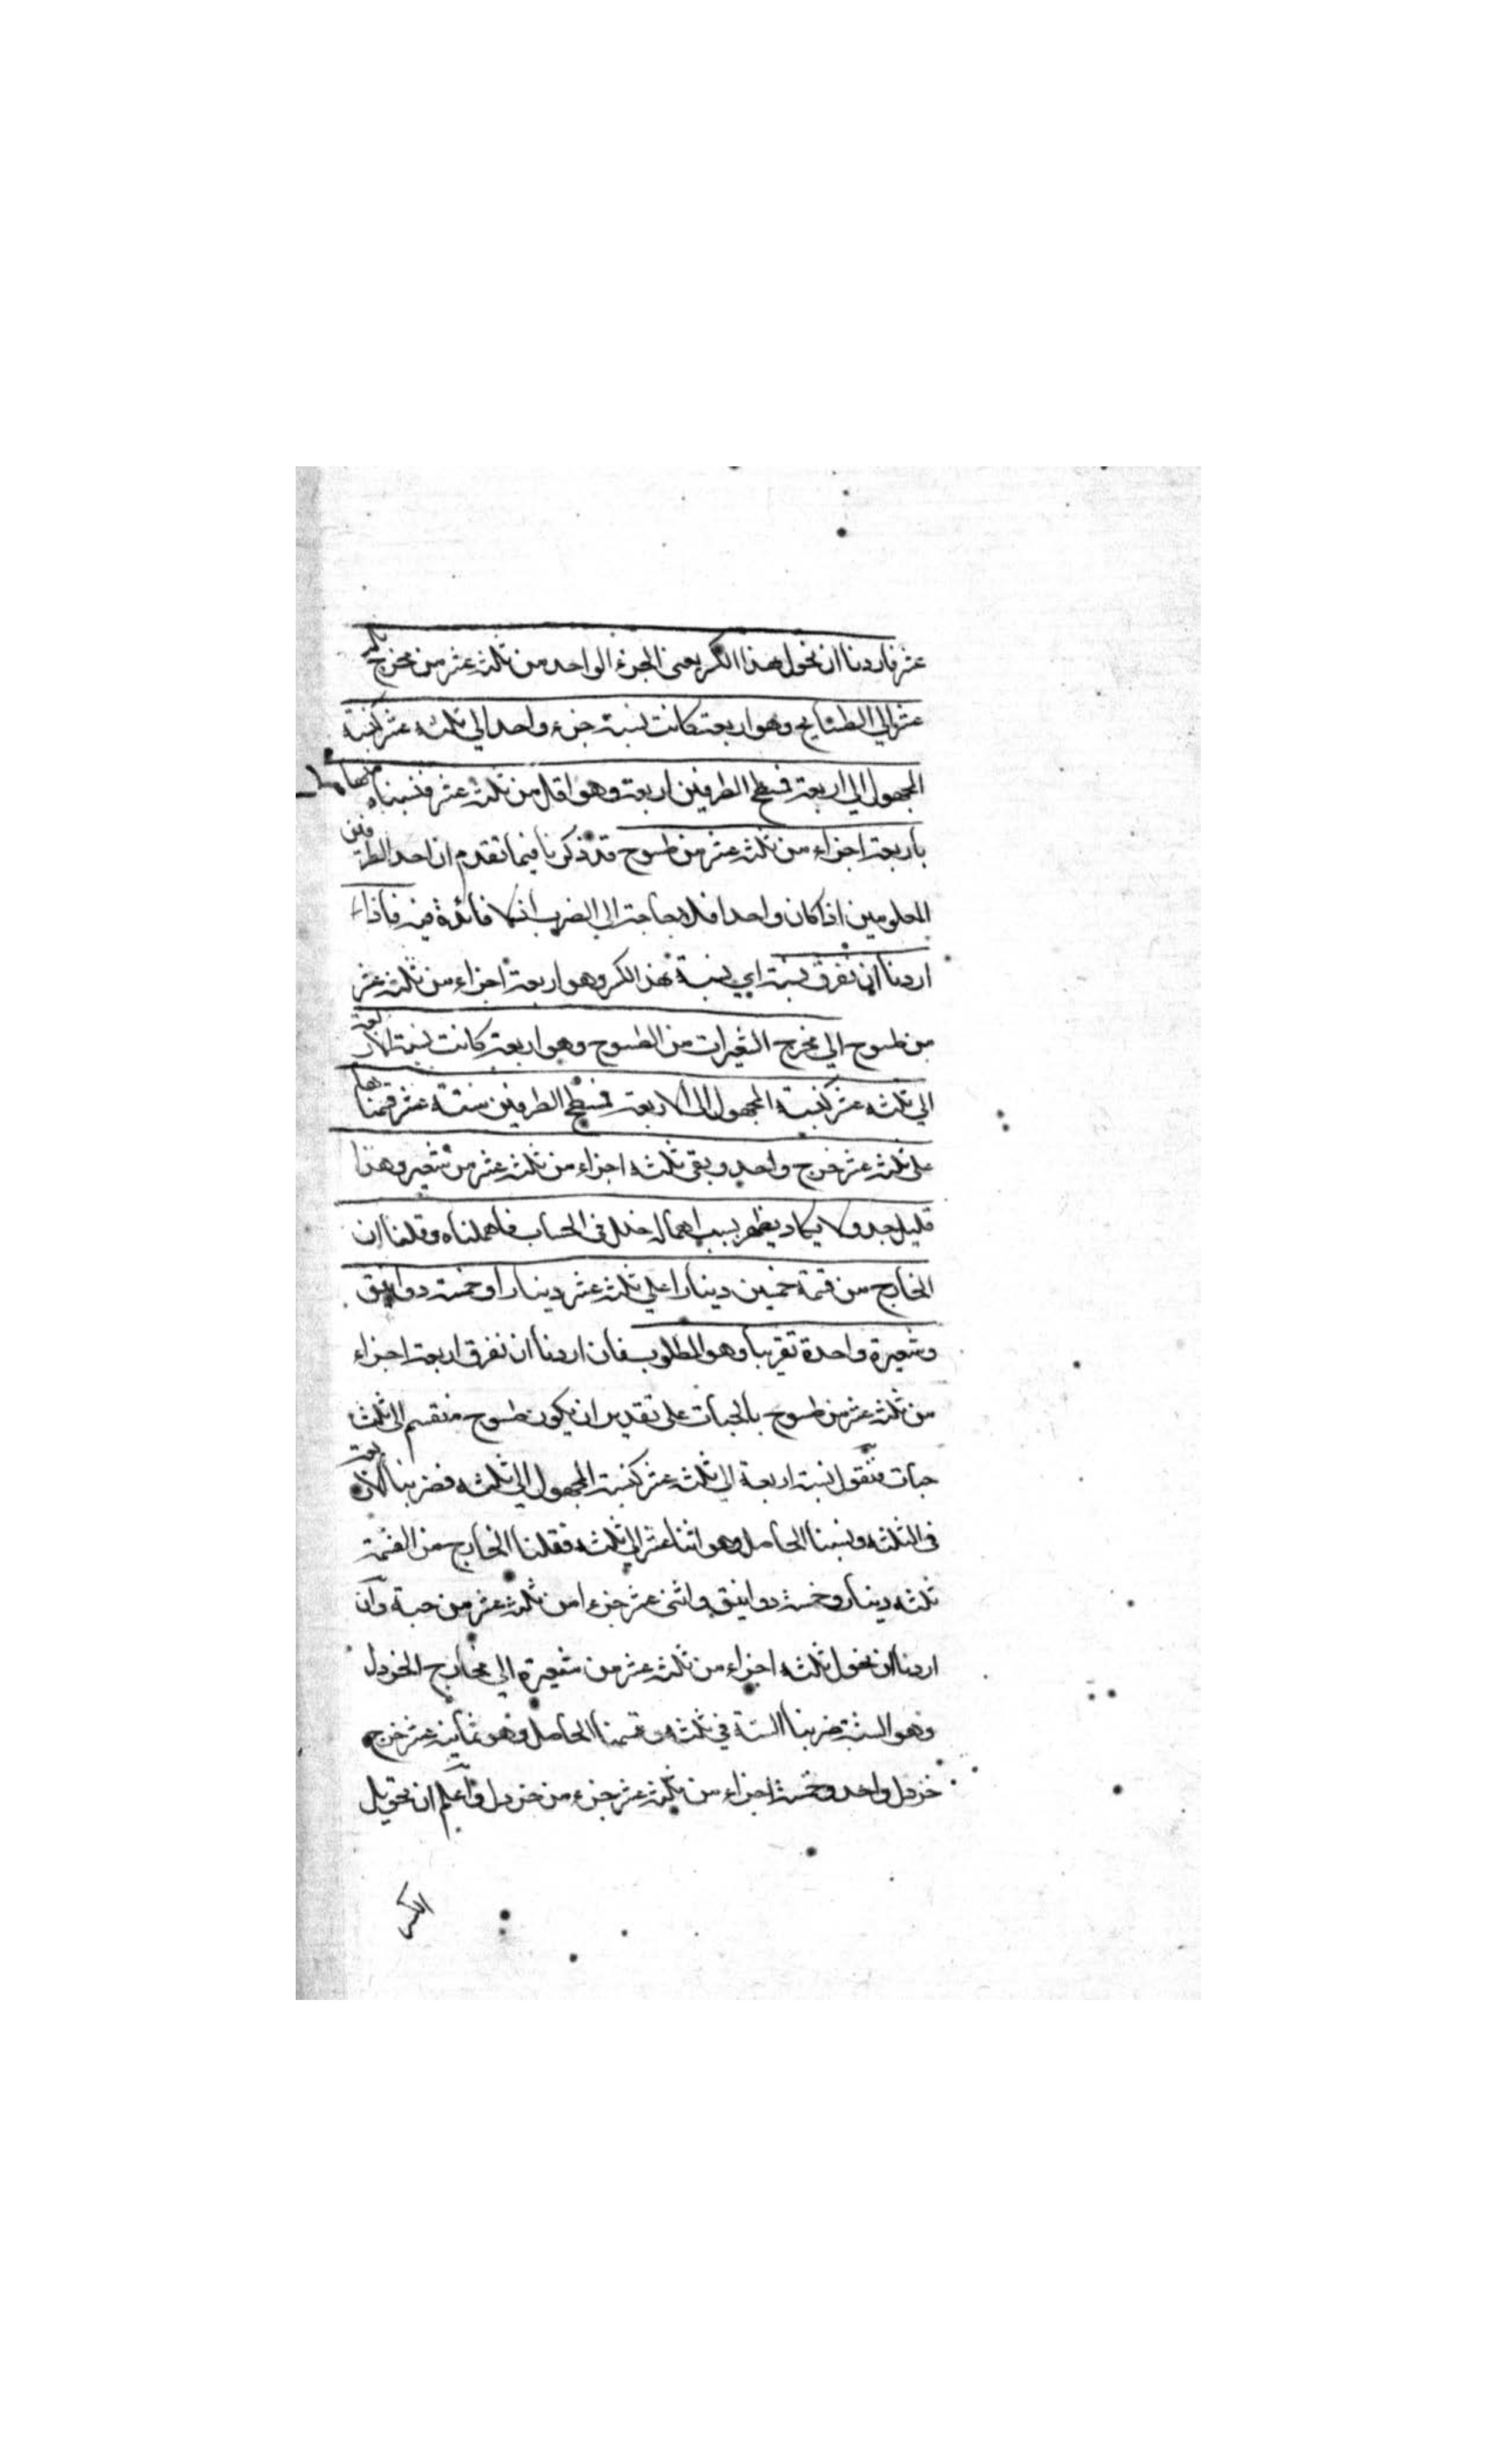 عشر فاردنا ان نحول هذا الكسر يعنى الجزء الواحد من ثلثة عشر من مخرج ثلثة
عشر الي الطساسيج وهو اربعة كانت نسبة جزء واحد الي ثلثة عشر كنسبة
المجهول الي اربعة فسطح الطرفين اربعة وهو اقل من ثلثة عشر فنسبناه منها
باربعة اجزاء من ثلثة عشر من طسوج قد ذكرنا فيما تقدم ان احد الطرفين
المعلومين اذا كان واحدا فلا حاجة الي الضرب اذ لا فائدة فيه فاذا
اردنا ان نفرق نسبة اي نسبة هذا الكسر وهو اربعة اجزاء من ثلثة عشر
من طسوج الي مخرج الشعيرات من الطسوج وهو اربعة كانت نسبة الاربعة
الي ثلثة عشر كنسبة المجهول الى الاربعة فسطح الطرفين ستة عشر قسمناها
على ثلثة عشر خرج واحد وبقى ثلثة اجزاء من ثلثة عشر من شعير وهذا
قليل جدا ولا يكاد يظهر بسبب اهماله خلل فى الحساب فاهملناه وقلنا ان
الخارج من قسمة خمسين دينارا علي ثلثة عشر دينارا وخمسة دوانيق
وشعيرة واحدة تقريبا وهو المطلوب فان اردنا ان نفرق اربعة اجزاء
من ثلثة عشر من طسوج بالحبات على تقدير ان يكون طسوج منقسم الى ثلث
حبات فنقول نسبة اربعة الي ثلثة عشر كنسبة المجهول الي ثلثة فضربنا الاربعة
فى الثلثة ونسبنا الحاصل وهو اثنا عشر الي ثلثة فقلنا الخارج من القسمة
ثلثة دينار وخمسة دوانيق واثنى عشر جزءا من ثلثة عشر من حبة وان
اردنا ان نحول ثلثة اجزاء من ثلثة عشر من شعيرة الي مخارج الخردل
وهو الستة ضربنا الستة في ثلثة وقسمنا الحاصل وهو ثمانية عشر خرج
خردل واحد وخمسة اجزاء من ثلثة عشر جزء من خردل واعلم ان تحويل
الكسر